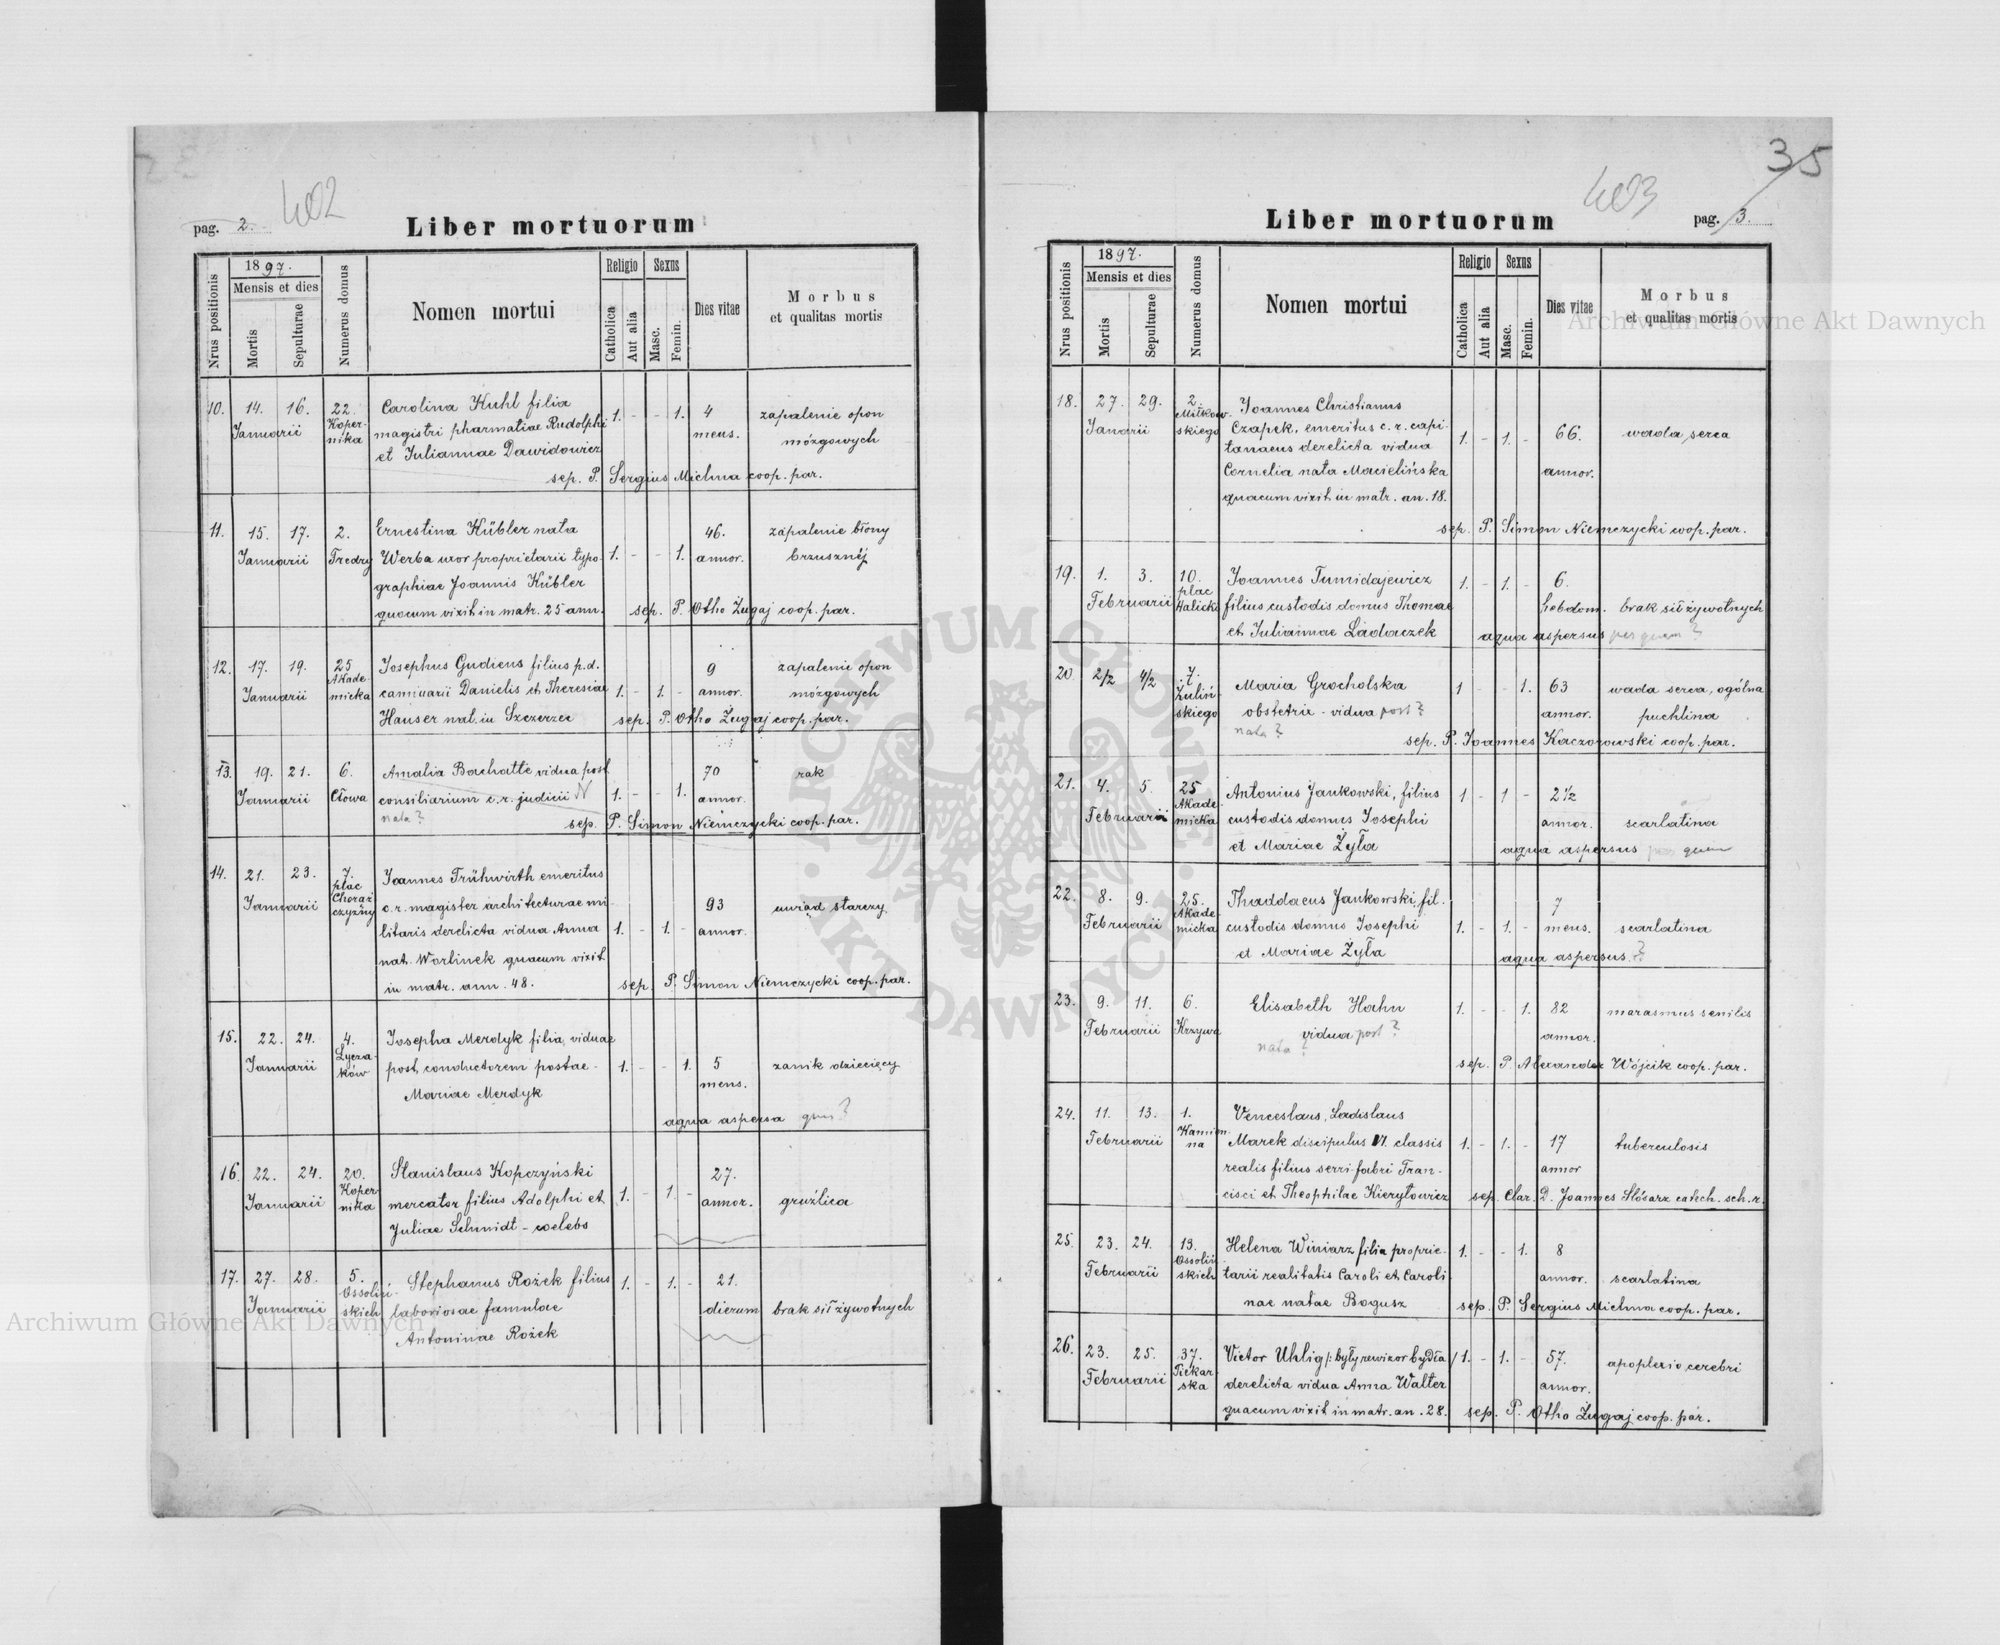 pag. 2.
402
Liber mortuorum
Nrus positionis
1897.
Mensis et dies
Mortis
Sepulturae
Numerus domus
Nomen mortui
Religio
Catholica
Aut alia
Sexus
Masc.
Femin.
Dies vitae
Morbus
et qualitas mortis
10. 14. 16. 22. Carolina Kuhl filia 1. - - 1. 4 zapalenie opon
Januarii Koper-nika magistri pharmatiae Rudolphi mens. mózgowych
et Juliannae Dawidowicz
sep. P. Sergius Michna coop. par.
11. 15. 17. 2. Ernestina Kübler nata 46. zapalenie błony
Januarii Fredry Werba uxor proprietarii typo- 1. - - 1. annor. brzusznéj
graphiae Joannis Kübler
quacum vixit in matr. 25 ann. sep. P. Otho Żugaj coop. par.
12. 17. 19. 25 Josephus Gudiens filius p.d. 9 zapalenie opon
Januarii Akade-micka camiuarii Danielis et Theresiae 1. - 1. - annor. mózgowych
Hauser nat. in Szczerzec sep. P. Otho Żugaj coop. par.
13. 19. 21. 6. Amalia Bachatte vidua post 70 rak
Januarii Cłowa consiliarium c.r. judicii N 1. - - 1. annor.
nata?
sep. P. Simon Niemczycki coop. par.
14. 21. 23. 7. Joannes Frühwirth emeritus
Januarii plac Chorąż-czyzny c.r. magister architecturae mi- 93 uwiąd starczy
litaris derelicta vidua Anna 1. - 1. - annor.
nat. Worlinek quacum vixit
in matr. ann. 48. sep. P. Simon Niemczycki coop. par.
15. 22. 24. 4. Josepha Merdyk filia viduae
Januarii Łycza-ków post conductorem postae - 1. - - 1. 5 zanik dziecięcy
Mariae Merdyk mens.
aqua aspersa quis?
16. 22. 24. 20. Stanislaus Kopczyński 27.
Januarii Koper-nika mercator filius Adolphi et 1. - 1. - annor. gruźlica
Juliae Schmidt - coelebs
17. 27. 28. 5. Stephanus Rożek filius 1. - 1. - 21.
Januarii Ossoliń-skich laboriosae famulae dierum brak sił żywotnych
Antoninae Rożek
35
403
Liber mortuorum
pag. 3.
Nrus positionis
1897.
Mensis et dies
Mortis
Sepulturae
Numerus domus
Nomen mortui
Religio
Catholica
Aut alia
Sexus
Masc.
Femin.
Dies vitae
Morbus
et qualitas mortis
18. 27. 29. 2. Joannes Christianus
Januarii Miłkow-skiego Czapek, emeritus c.r. capi- 1. - 1. - 66. wada serca
taneus derelicta vidua
Cornelia nata Macielińska annor.
quacum vixit in matr. an. 18.
sep. P. Simon Niemczycki coop. par.
19. 1. 3. 10. Joannes Tumidajewicz 1. - 1. - 6.
Februarii plac Halicki filius custodis domus Thomae hebdom. brak sił żywotnych
et Juliannae Ladaczek aqua aspersus per quem?
20 2/2 4/2 7. Maria Grocholska 1 - - 1. 63 wada serca, ogólna
Żuliń-skiego obstetrix - vidua post? annor. puchlina
nata?
sep. P. Joannes Kaczorowski coop. par.
21. 4. 5. 25 Antonius Jankowski, filius 1 - 1 - 2½
Februarii Akade-micka custodis domus Josephi annor. scarlatina
et Mariae Żyła aqua aspersus per quem
22. 8. 9. 25. Thaddaeus Jankowski, fil. 7
Februarii Akade-micka custodis domus Josephi 1. - 1. - mens. scarlatina
et Mariae Żyła aqua aspersus ?
23. 9. 11. 6. Elisabeth Hahn 1. - - 1. 82 marasmus senilis
Februarii Krzywa vidua post? annor.
nata?
sep. P. Alexander Wójcik coop. par.
24. 11. 13. 1. Venceslaus, Ladislaus
Februarii Kamien-na Marek discipulus VI. classis 1. - 1. - 17 tuberculosis
realis filius serri fabri Fran- annor
cisci et Theophilae Kieryłowicz sep. Clar. D. Joannes Ślósarz catech. sch. r.
25. 23. 24. 13. Helena Winiarz filia proprie- 1. - - 1. 8
Februarii Ossoliń-skich tarii realitatis Caroli et Caroli- annor. scarlatina
nae natae Bogusz sep. P. Sergius Michna coop. par.
26. 23. 25. 37. Victor Uhlig /: były rewizor bydła / 1. - 1. - 57. apoplexio cerebri
Februarii Piekar-ska derelicta vidua Anna Walter annor.
quacum vixit in matr. an. 28. sep. P. Otho Żugaj coop. par.
Archiwum Główne Akt Dawnych
Archiwum Główne Akt Dawnych
ARCHIWUM GŁÓWNE AKT DAWNYCH